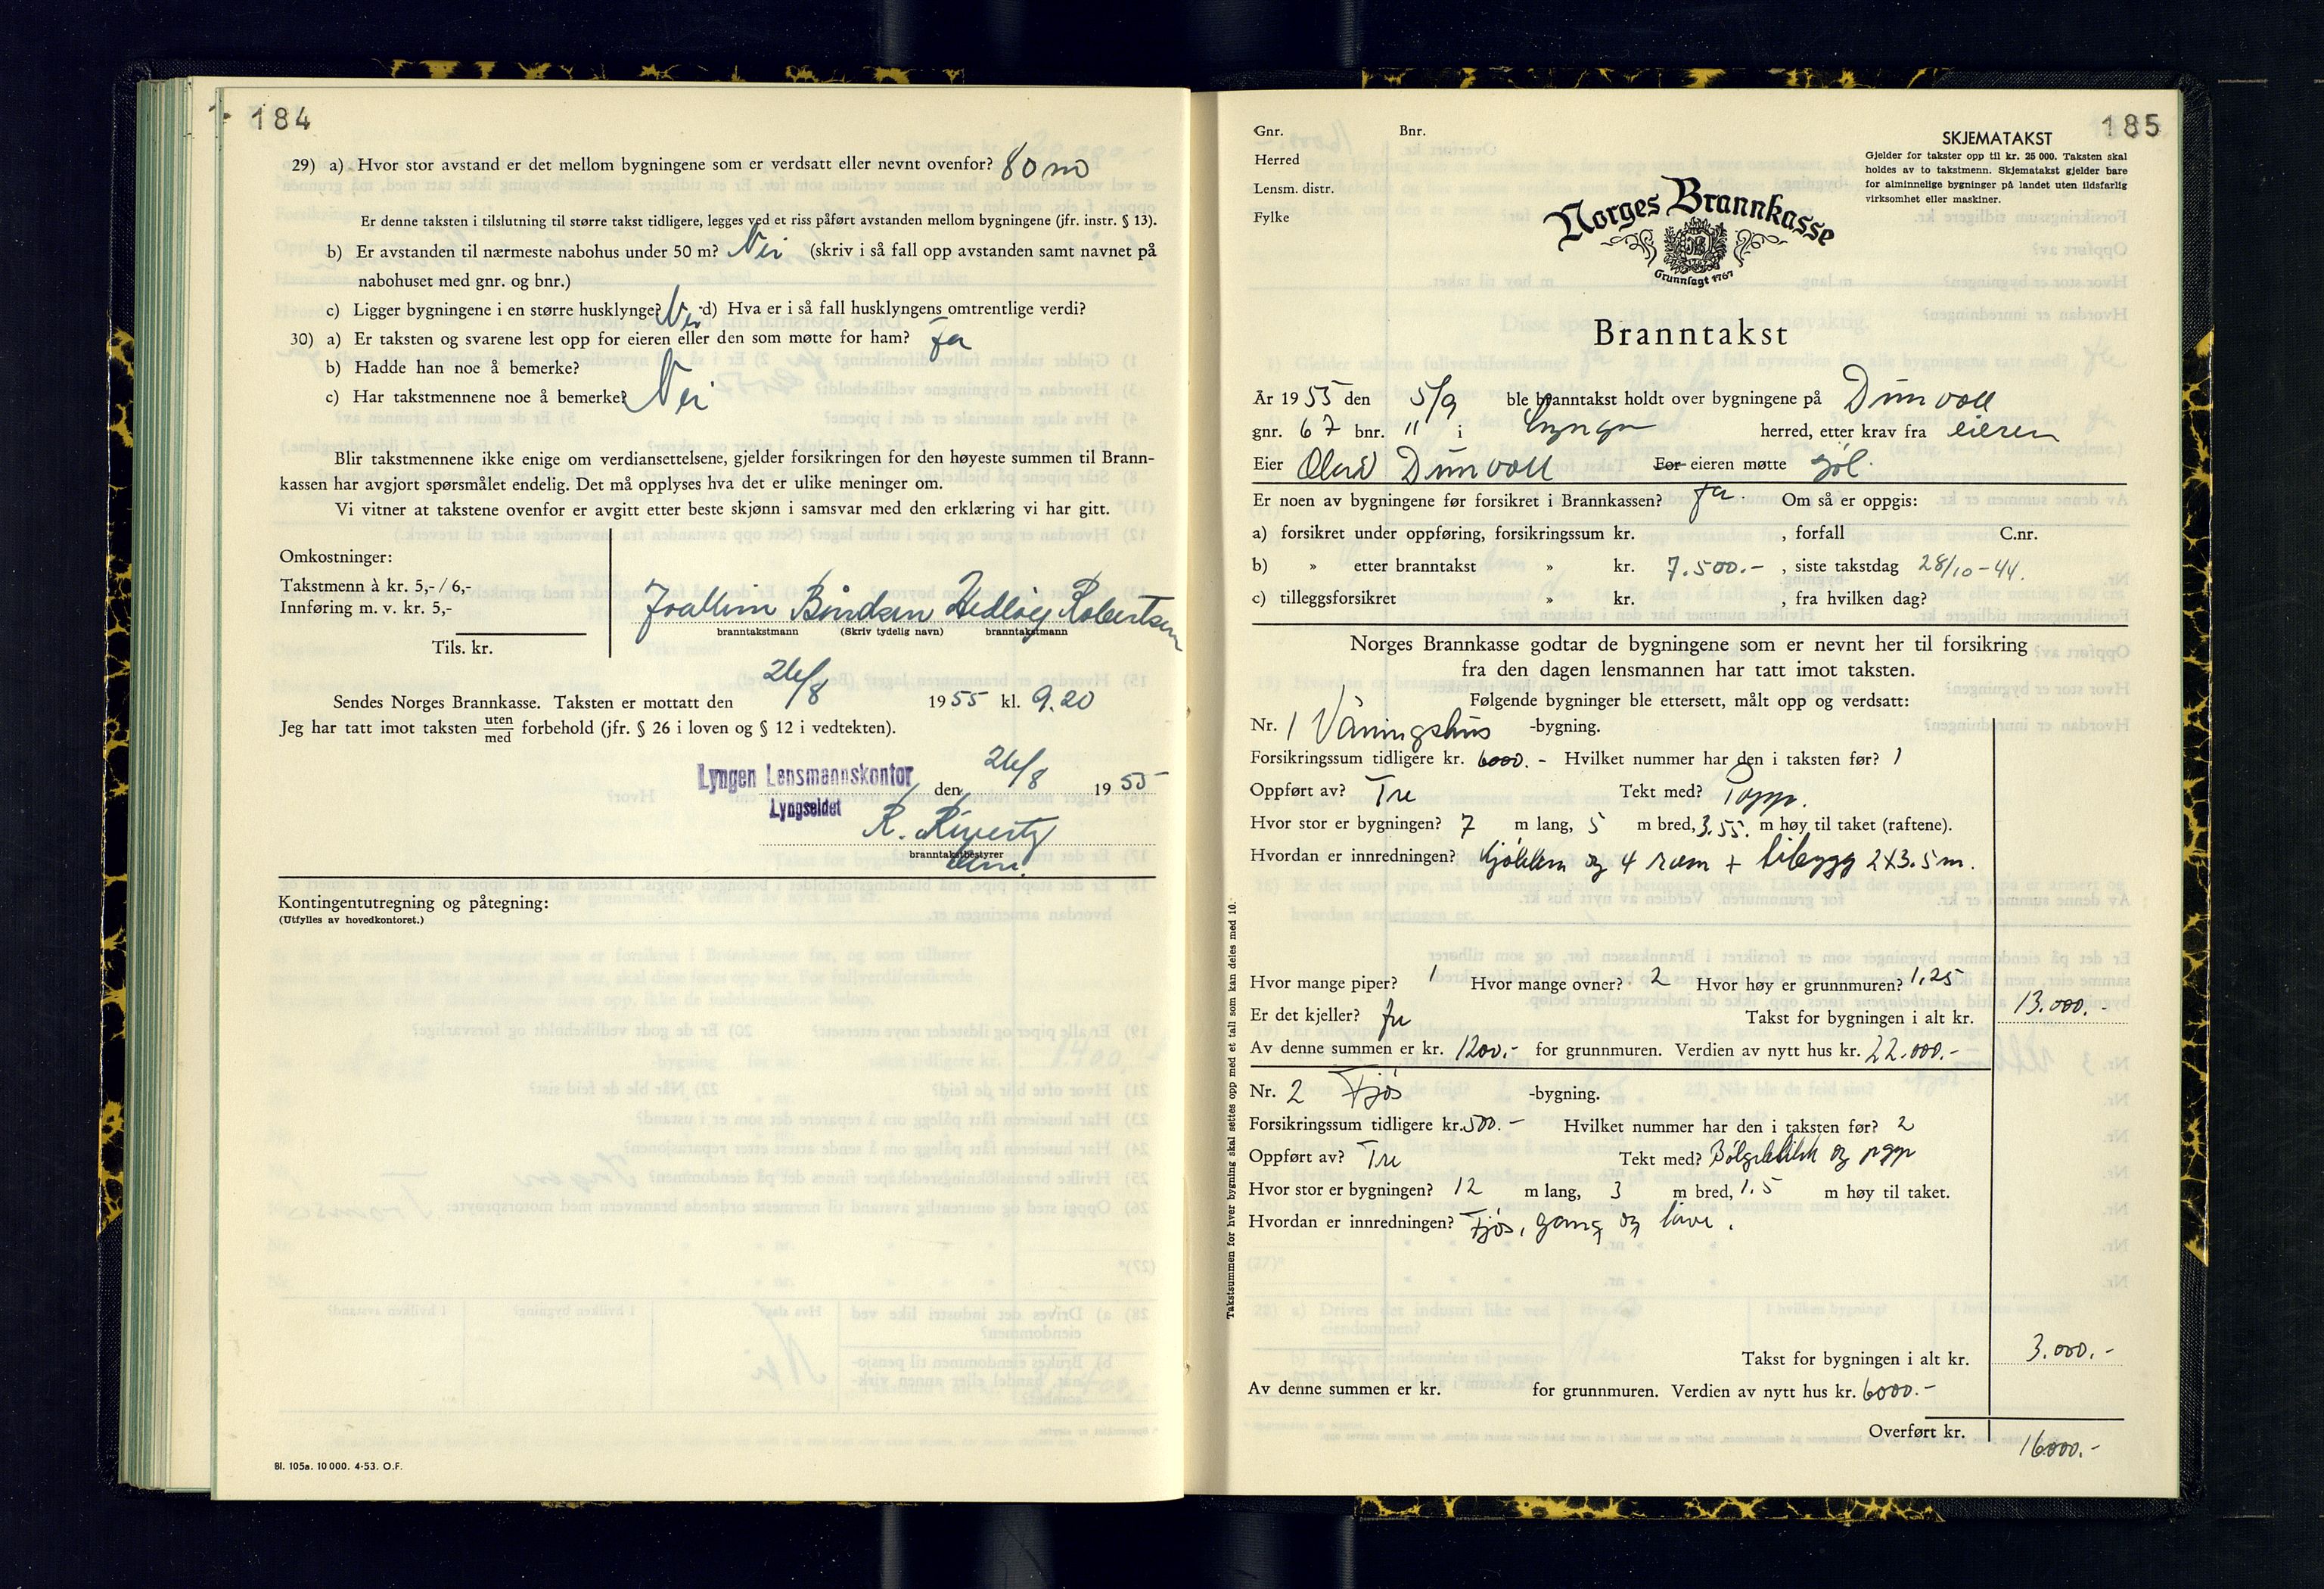 184
29) a) Hvor stor avstand er det mellom bygningene som er verdsatt eller nevnt ovenfor? 80 m
Er denne taksten i tilslutning til større takst tidligere, legges ved et riss påført avstanden mellom bygningene (jfr. instr. § 13).
b) Er avstanden til nærmeste nabohus under 50 m? Nei (skriv i så fall opp avstanden samt navnet på
nabohuset med gnr. og bnr.)
c) Ligger bygningene i en større husklynge? Nei d) Hva er i så fall husklyngens omtrentlige verdi?
30) a) Er taksten og svarene lest opp for eieren eller den som møtte for ham? Ja
b) Hadde han noe å bemerke?
c) Har takstmennene noe å bemerke? Nei
Blir takstmennene ikke enige om verdiansettelsene, gjelder forsikringen for den høyeste summen til Brann-
kassen har avgjort spørsmålet endelig. Det må opplyses hva det er ulike meninger om.
Vi vitner at takstene ovenfor er avgitt etter beste skjønn i samsvar med den erklæring vi har gitt.
Omkostninger:
Takstmenn à kr. 5,- / 6,-
Innføring m. v. kr. 5,-
Tils. kr.
Hedlvig Robertsen
branntakstmann (Skriv tydelig navn) branntakstmann
Sendes Norges Brannkasse. Taksten er mottatt den 26/8 1955 kl. 9.20
Jeg har tatt imot taksten uten/med forbehold (jfr. § 26 i loven og § 12 i vedtekten).
Lyngen Lensmannskontor den 26/8 1955
Lyngseidet
R.
branntakstbestyrer
Kontingentutregning og påtegning:
(Utfylles av hovedkontoret.)
Bl. 105a. 10 000. 4-53. O.F.
185
Gnr. Bnr.
Herred
Lensm. distr.
Fylke
SKJEMATAKST
Gjelder for takster opp til kr. 25 000. Taksten skal
holdes av to takstmenn. Skjematakst gjelder bare
for alminnelige bygninger på landet uten ildsfarlig
virksomhet eller maskiner.
Norges Brannkasse
Grunnlagt 1767
Branntakst
År 1955 den 5/9 ble branntakst holdt over bygningene på Dunvoll
gnr. 67 bnr. 11 i Lyngen herred, etter krav fra eieren
Eier Olav Dunvoll For eieren møtte sjøl.
Er noen av bygningene før forsikret i Brannkassen? Ja. Om så er oppgis:
a) forsikret under oppføring, forsikringssum kr. , forfall C.nr.
b) » etter branntakst » kr. 7.500.- , siste takstdag 28/10-44.
c) tilleggsforsikret » kr. , fra hvilken dag?
Norges Brannkasse godtar de bygningene som er nevnt her til forsikring
fra den dagen lensmannen har tatt imot taksten.
Følgende bygninger ble ettersett, målt opp og verdsatt:
Nr. 1 Våningshus -bygning.
Forsikringssum tidligere kr. 6000.- Hvilket nummer har den i taksten før? 1
Oppført av? Tre Tekt med? Papp.
Hvor stor er bygningen? 7 m lang, 5 m bred, 3.55. m høy til taket (raftene).
Hvordan er innredningen? Kjøkken og 4 rom + tilbygg 2x3.5 m.
Hvor mange piper? 1 Hvor mange ovner? 2 Hvor høy er grunnmuren? 1,25
Er det kjeller? Ja Takst for bygningen i alt kr. 13.000.-
Av denne summen er kr. 1200.- for grunnmuren. Verdien av nytt hus kr. 22.000.-
Nr. 2 Fjøs -bygning.
Forsikringssum tidligere kr. 500.- Hvilket nummer har den i taksten før? 2
Oppført av? Tre Tekt med? Bølgeblikk og papp
Hvor stor er bygningen? 12 m lang, 3 m bred, 1.5 m høy til taket.
Hvordan er innredningen? Fjøs, gang og låve.
Takst for bygningen i alt kr. 3.000.-
Av denne summen er kr. for grunnmuren. Verdien av nytt hus kr. 6000.-
Overført kr. 16000.-
Takstsummen for hver bygning skal settes opp med et tall som kan deles med 10.